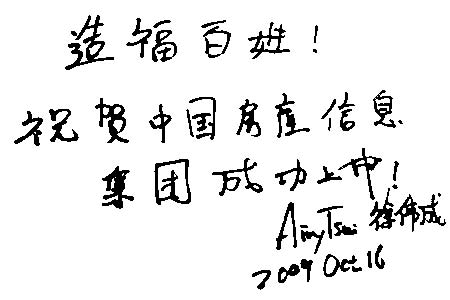 造福百姓!
祝贺中国房产信息
集团成功上市!
徐伟成
2009 Oct 16